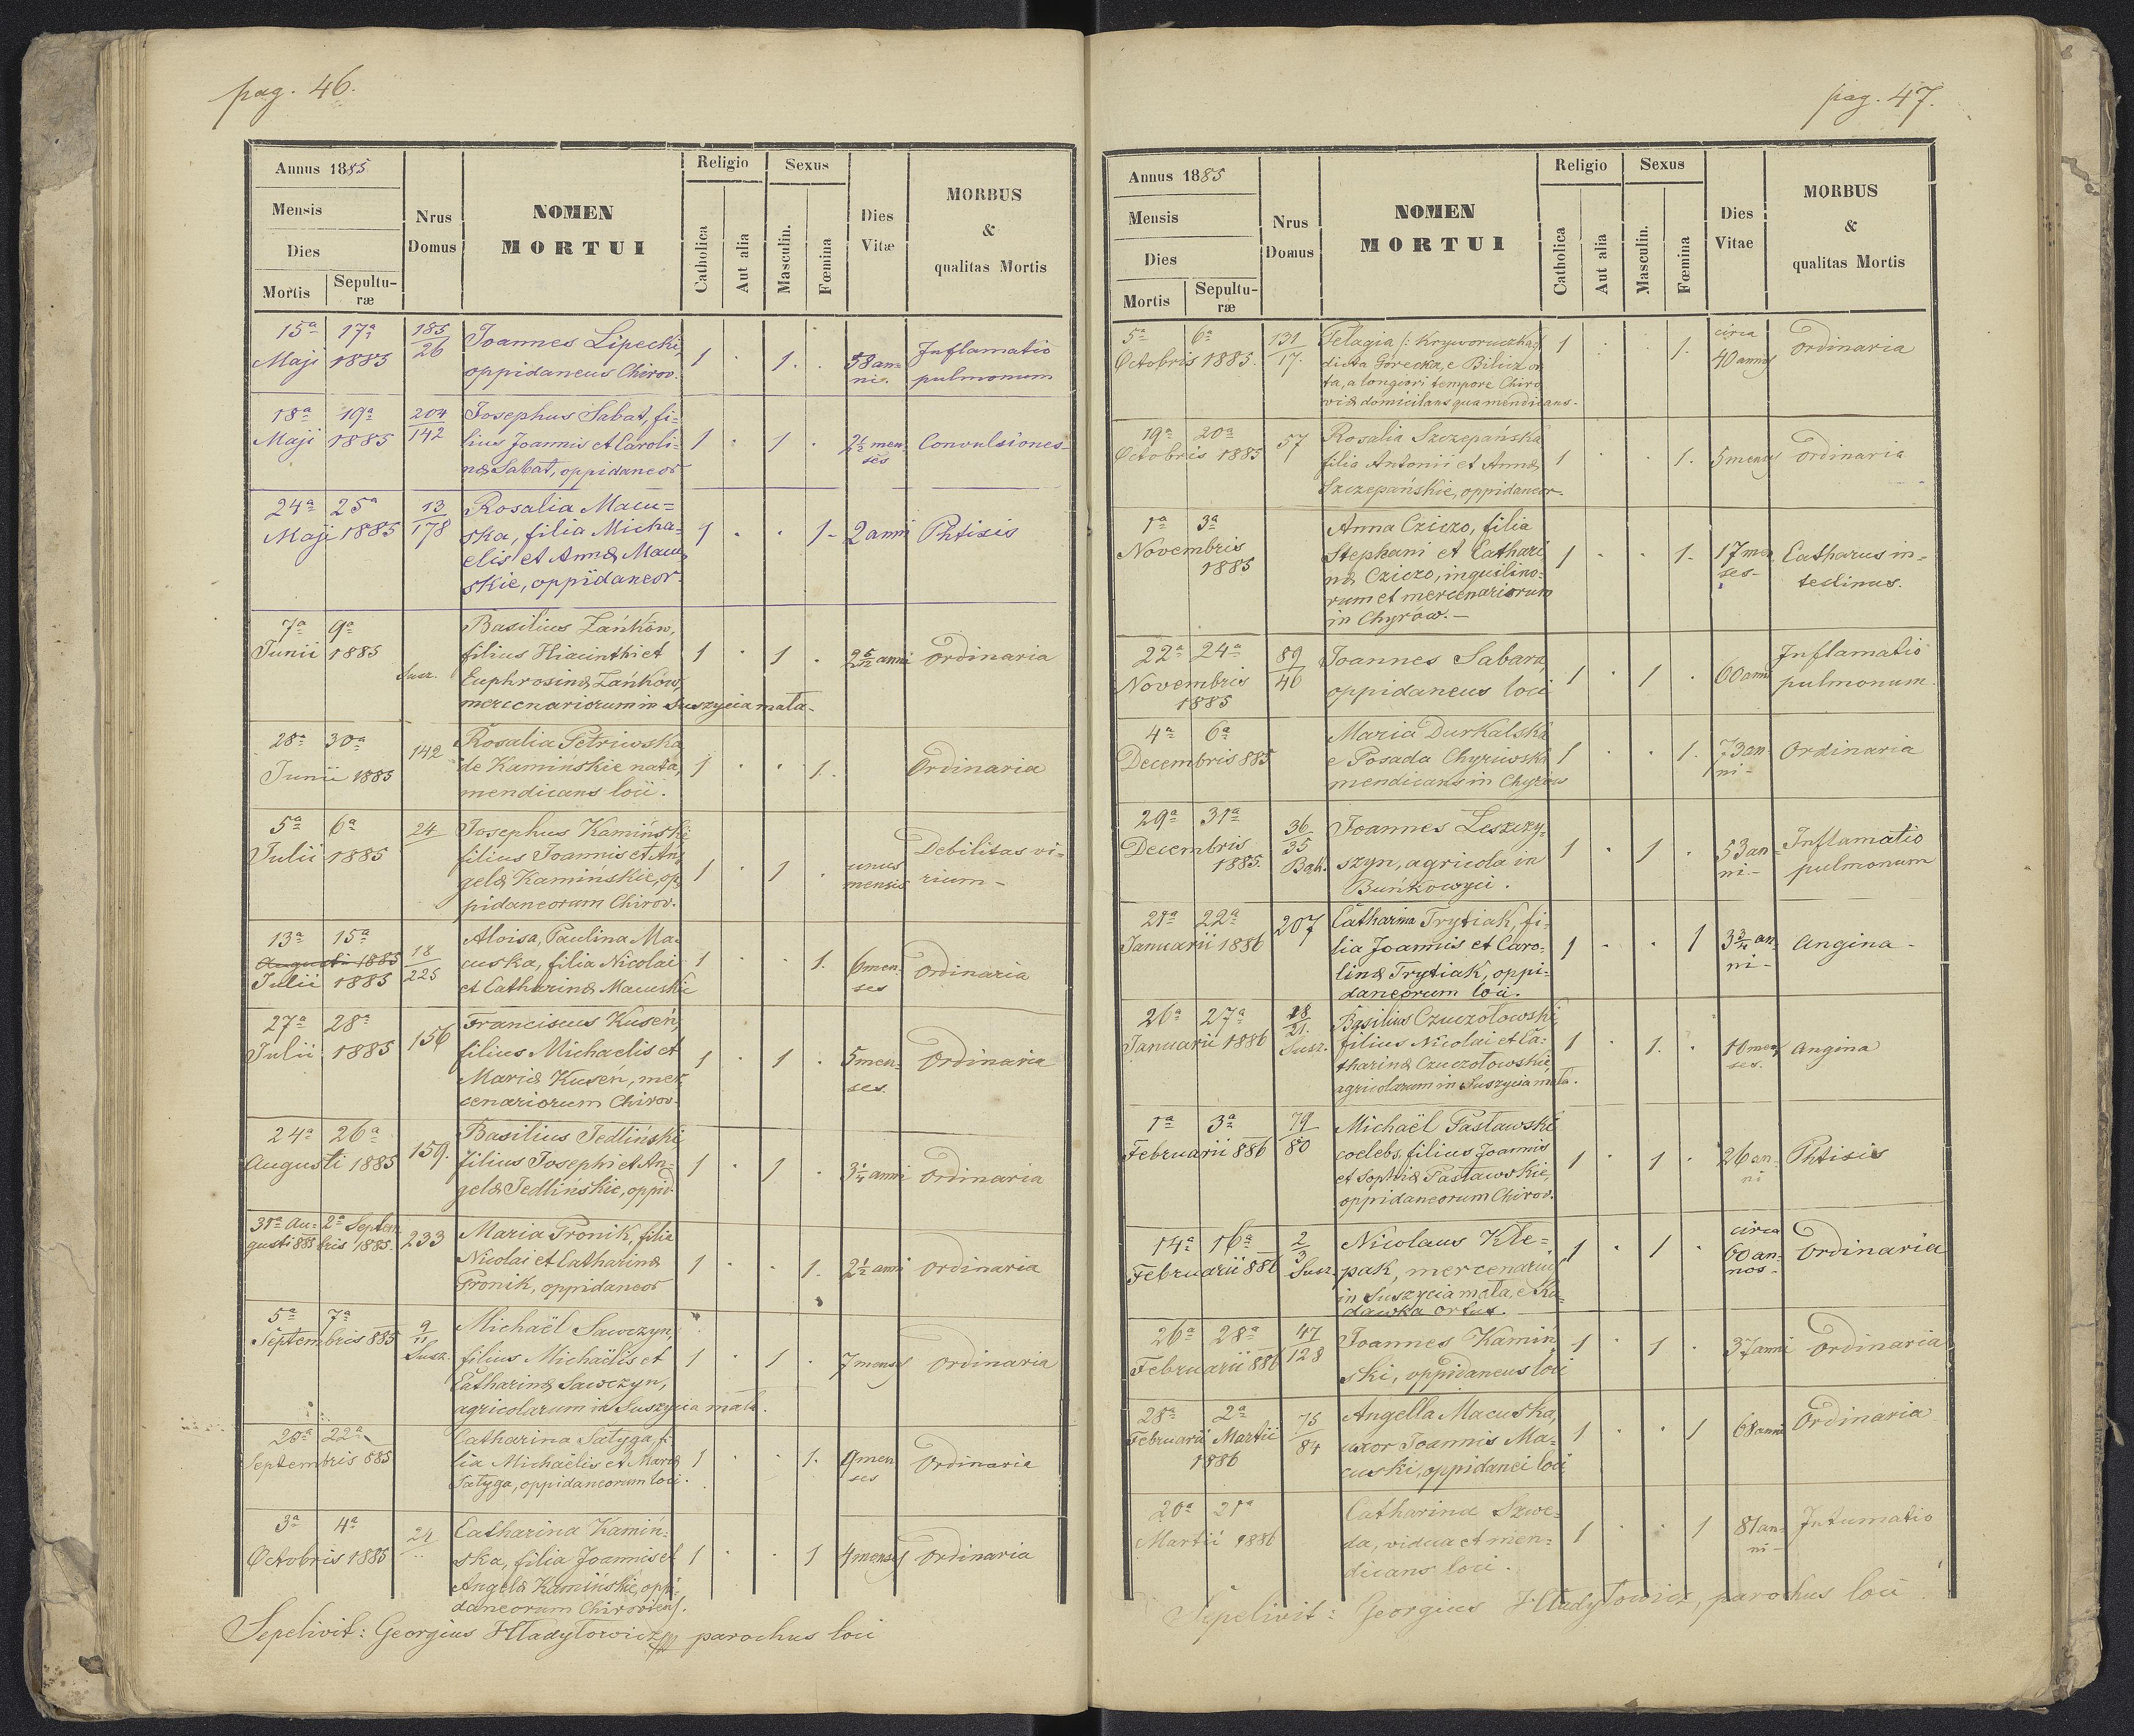 pag. 46.
Annus 1885
Mensis
Dies
Mortis
Sepultu-
ræ
Nrus
Domus
NOMEN
MORTUI
Religio
Catholica
Aut alia
Sexus
Masculin.
Fœmina
Dies
Vitæ
MORBUS
&
qualitas Mortis
15ª 17ª
Maji 1885
185
26
Joannes Lipecki,
oppidaneus Chirov.
1 . 1 .
58 an-
ni.
Inflamatio
pulmonum
18ª 19ª
Maji 1885
204
142
Josephus Sabat, fi-
lius Joannis et Caroli-
næ Sabat, oppidaneor
1 . 1 .
2½ men-
ses
Convulsiones
24ª 25ª
Maji 1885
13
178
Rosalia Macu=
ska, filia Micha-
elis et Annæ Macu-
skie, oppidaneor.
1 . . 1
2 anni
Phtisis
7ª 9ª
Junii 1885
Susz.
Basilius Zańków,
filius Hiacinthi et
Euphrosinæ Zańków,
mercenariorum in Suszycia mała
1 . 1 .
2 5/12 anni
Ordinaria
28ª 30ª
Junii 1885
142
Rosalia Petriwska
de Kamińskie nata,
mendicans loci.
1 . . 1.
Ordinaria
5ª 6ª
Julii 1885
24
Josephus Kamiński
filius Joannis et An-
gelæ Kamińskie, op-
pidaneorum Chirov.
1 . 1 .
unus
mensis
Debilitas vi-
rium
13ª 15ª
Augusti 1885
Julii 1885
18
225
Aloisa, Paulina Ma-
cuska, filia Nicolai
et Catharinæ Macuskie
1 . . 1.
6 men-
ses
Ordinaria
27ª 28ª
Julii 1885
156
Franciscus Kuseń,
filius Michaelis et
Mariæ Kuseń, mer-
cenariorum Chirov.
1 . 1 .
5 men-
ses.
Ordinaria
24ª 26ª
Augusti 1885
159.
Basilius Jedliński,
filius Josephi et An-
gelæ Jedlińskie, oppid.
1 . 1 .
3¼ anni
Ordinaria
31ª Au- 2ª Septem
gusti 885 bris 1885.
233
Maria Pronik, filia
Nicolai et Catharinæ
Pronik, oppidaneor
1 . . 1.
2½ anni
Ordinaria
5ª 7ª
Septembris 885
9
11
Susz.
Michaël Sawczyn,
filius Michäelis et
Catharinæ Sawczyn,
agricolarum in Suszycia mała.
1 . 1 .
7 menses
Ordinaria
20ª 22ª
Septembris 885
Catharina Sałyga, fi-
lia Michaëlis et Mariæ
Sałyga, oppidaneorum loci.
1 . . 1.
9 men
ses
Ordinaria
3ª 4ª
Octobris 1885
24
Catharina Kamiń-
ska, filia Joannis et
Angelæ Kamińskie, oppi-
daneorum Chirovien.
1 . . 1
4 menses
Ordinaria
Sepelivit: Georgius Hładyłowicz parochus loci
pag. 47.
Annus 1885
Mensis
Dies
Mortis
Sepultu-
ræ
Nrus
Domus
NOMEN
MORTUI
Religio
Catholica
Aut alia
Sexus
Masculin.
Fœmina
Dies
Vitae
MORBUS
&
qualitas Mortis
5ª 6ª
Octobris 1885.
131
17.
Pelagia /: Kryworuczka :/
dicta Gorecka, e Bilicz or
ta, a longiori tempore Chiro
viæ domicilans qua mendicans.
1 . . 1.
circa
40 annos
Ordinaria
19ª 20ª
Octobris 1885
57
Rosalia Szczepańska
filia Antonii et Annæ
Szczepańskie, oppidaneor.
1 . . 1.
5 menses
Ordinaria
1ª 3ª
Novembris
1885
Anna Cziczo, filia
Stephani et Cathari
næ Cziczo, inquilino-
rum et mercenariorum
in Chyrów.
1 . . 1.
17 men
ses
Catharus in-
testinus.
22ª 24ª
Novembris
1885
89
46
Joannes Sabara
oppidaneus loci
1 . 1 .
60 anni
Inflamatio
pulmonum
4ª 6ª
Decembris 885
Maria Durkalska
e Posada Chyriwska
mendicans in Chyrów
1 . . 1.
73 an-
ni
Ordinaria
29ª 31ª
Decembris
1885.
36
35
Bąk.
Joannes Leszczy-
szyn, agricola in
Buńkowyci.
1 . 1 .
53 an-
ni.
Inflamatio
pulmonum
21ª 22ª
Januarii 1886
207
Catharina Trytiak, fi-
lia Joannis et Caro-
linæ Trytiak, oppi-
daneorum loci.
1 . . 1
3¾ an-
ni
Angina
26ª 27ª
Januarii 1886
18
21.
Susz.
Basilius Czuczołowski,
filius Nicolai et Ca-
tharinæ Czuczołowskie,
agricolarum in Suszycia mała.
1 . 1. .
10 men
ses.
Angina
1ª 3ª
Februarii 886
79
80
Michaël Pasławski
coelebs, filius Joannis
et Sophiæ Pasławskie,
oppidaneorum Chirov.
1 . 1 .
26 an-
ni
Phtisis
14ª 16ª
Februarii 886
2
3
Susz.
Nicolaus Kle=
pak, mercenarius
in Suszycia mała, e Ru-
dawka ortus.
1 . 1 .
circa
60 an-
nos
Ordinaria
26ª 28ª
Februarii 886
47
128
Joannes Kamiń
ski, oppidaneus loci
1 1 .
37 anni
Ordinaria
28ª 2ª
Februarii Martii
1886
75
84
Angella Macuska,
uxor Joannis Ma-
cuski, oppidanei loci
1 . . 1
68 anni
Ordinaria
20ª 21ª
Martii 1886
Catharina Szwe-
da, vidua et men-
dicans loci.
1 . . 1
81 an-
ni
Intumatio
Sepelivit: Georgius Hładyłowicz, parochus loci